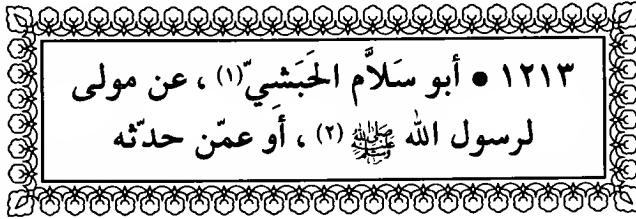 ١٢١٣ ● أبو سَلاَّم الحَبَشيّ(١) ، عن مولى
لرسول الله ﷺ (٢) ، أو عمّن حدّثه